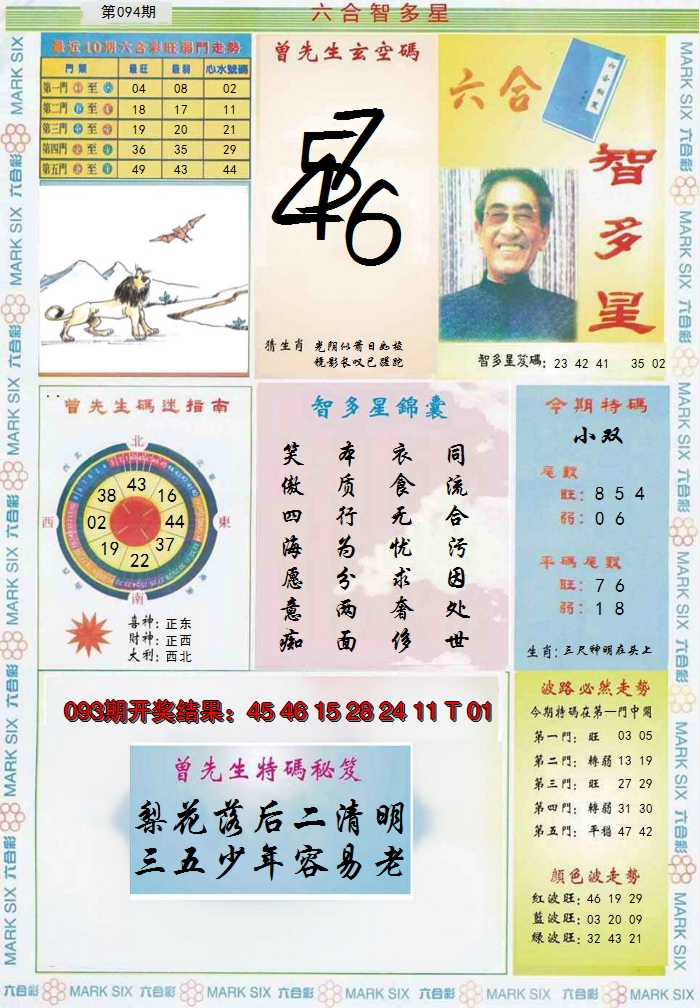 第094期
六合智多星
最近10期六合彩旺弱門走勢
門類 最旺 最弱 心水號碼
第一門 至 04 08 02
第二門 至 18 17 11
第三門 至 19 20 21
第四門 至 36 35 29
第五門 至 49 43 44
曾先生玄空碼
5 7
4 1 6
猜生肖 光阴似箭日如梭
镜影长叹已蹉跎
六合
智多星
智多星笈碼: 23 42 41 35 02
曾先生碼迷指南
北
西北
東北
43
38 16
西 02 44 東
19 37
22
南
喜神: 正东
財神: 正西
大利: 西北
智多星錦囊
笑傲四海愿意痴
本质行为分两面
衣食无忧求奢侈
同流合污因处世
今期特碼
小双
尾數
旺: 8 5 4
弱: 0 6
平碼尾數
旺: 7 6
弱: 1 8
生肖: 三尺神明在头上
093期开奖结果: 45 46 15 28 24 11 T 01
曾先生特碼秘笈
梨花落后二清明
三五少年容易老
波路必然走勢
今期特碼在第一門中開
第一門: 旺 03 05
第二門: 轉弱 13 19
第三門: 旺 27 29
第四門: 轉弱 31 30
第五門: 平穩 47 42
顏色波走勢
紅波旺: 46 19 29
藍波旺: 03 20 09
綠波旺: 32 43 21
MARK SIX 六合彩